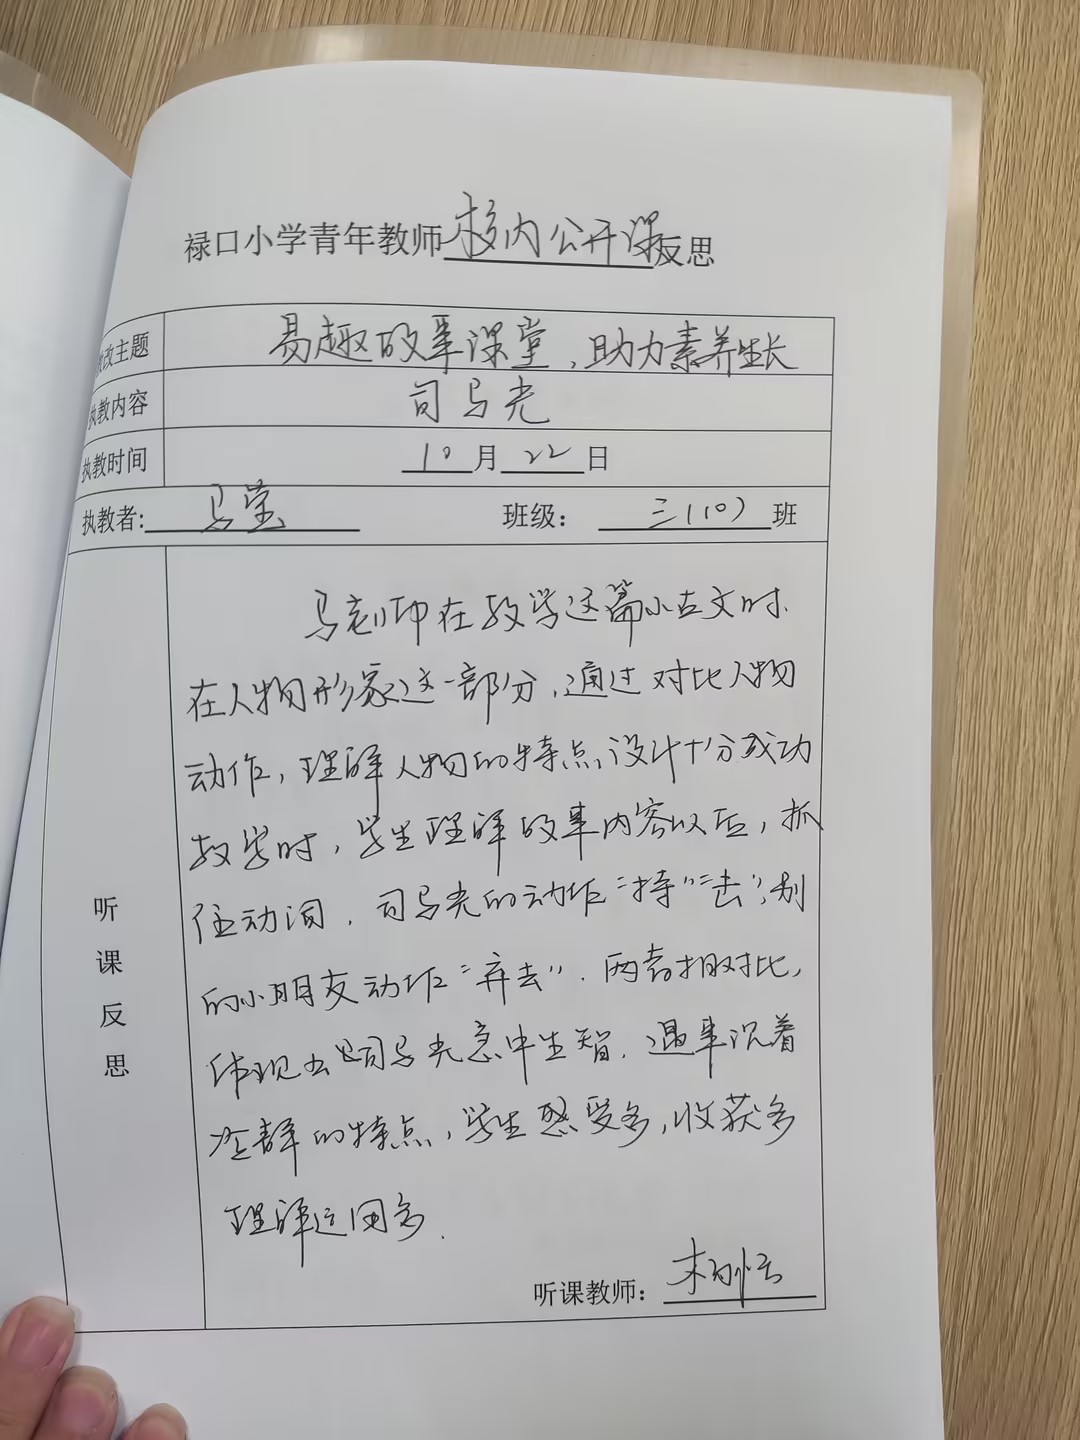 禄口小学青年教师校内公开课反思
改主题 易趣故事课堂、助力素养生长
执教内容 司马光
执教时间 10月22日
执教者: 马莹 班级: 三(10)班
听课反思
马刻印在教学这篇小古文时、
在人物形象这一部分,通过对比人物
动作,理解人物的特点,设计十分成功
教学时,学生理解故事内容以后,抓
住动词,司马光的动作“持”“击”,别
的小朋友动作“弃去”.两者相对比,
体现出司马光急中生智、遇事沉着
冷静的特点,学生感受多,收获多
理解运用多.
听课教师: